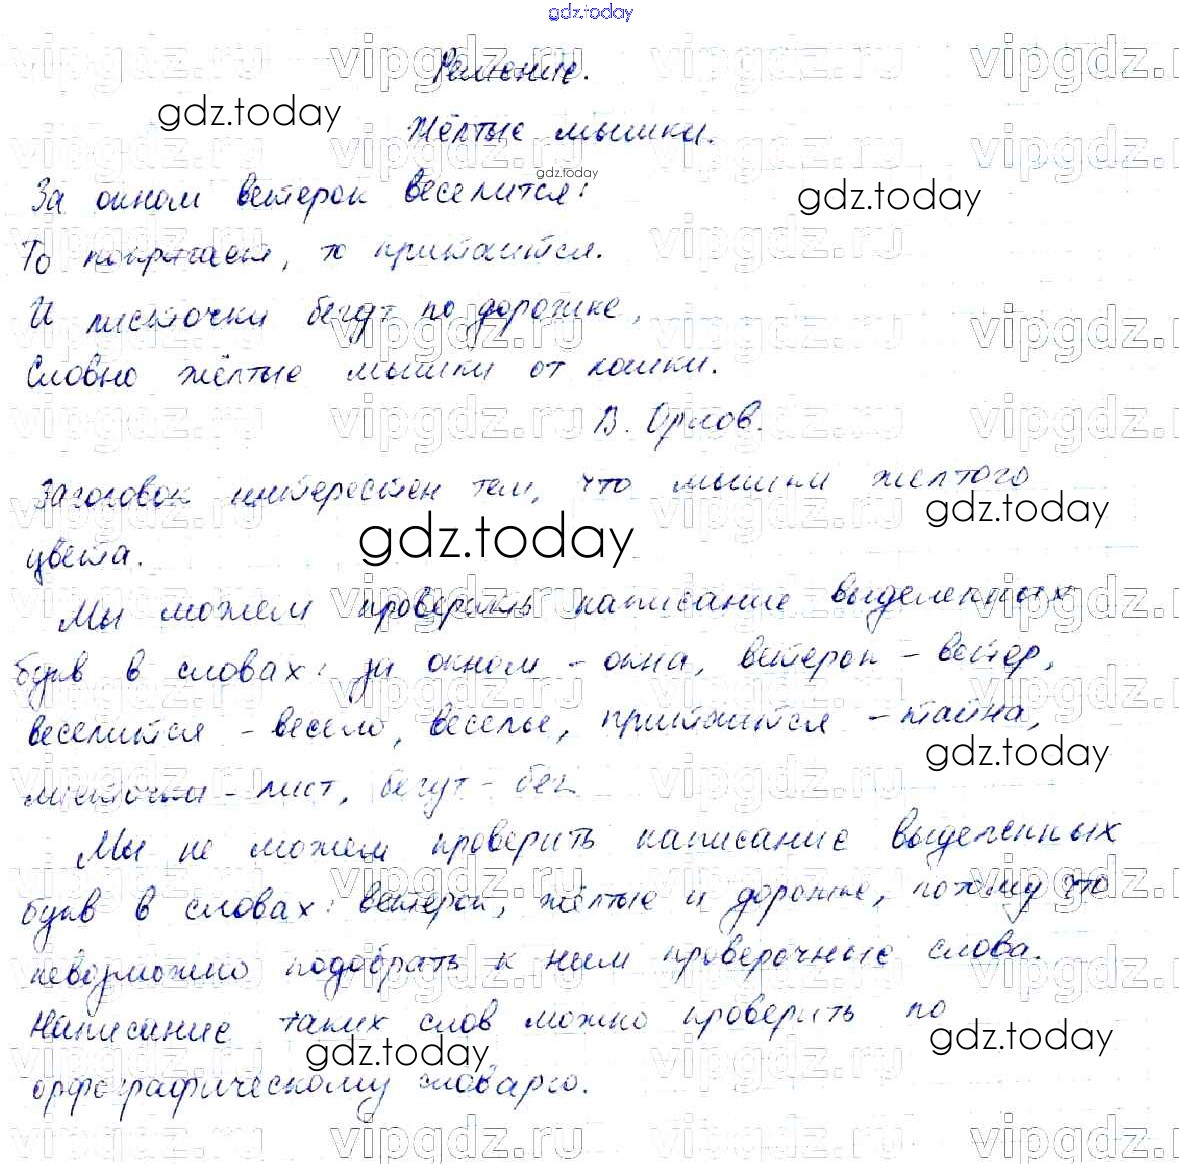 gdz.today
Решение.
Жёлтые мышки.
За окном ветерок веселится:
То попрягает, то притаится.
И листочки бегут по дорожке,
Словно жёлтые мышки от кошки.
В. Орлов.
Заголовок интересен тем, что мышки желтого
цвета.
Мы можем проверить написание выделенных
букв в словах: за окном - окна, ветерок - ветер,
веселится - весело, веселье, притаится - тайна,
листочки - лист, бегут - бег.
Мы не можем проверить написание выделенных
букв в словах: ветерок, жёлтые и дорожке, потому что
невозможно подобрать к ним проверочные слова.
Написание таких слов можно проверить по
орфографическому словарю.